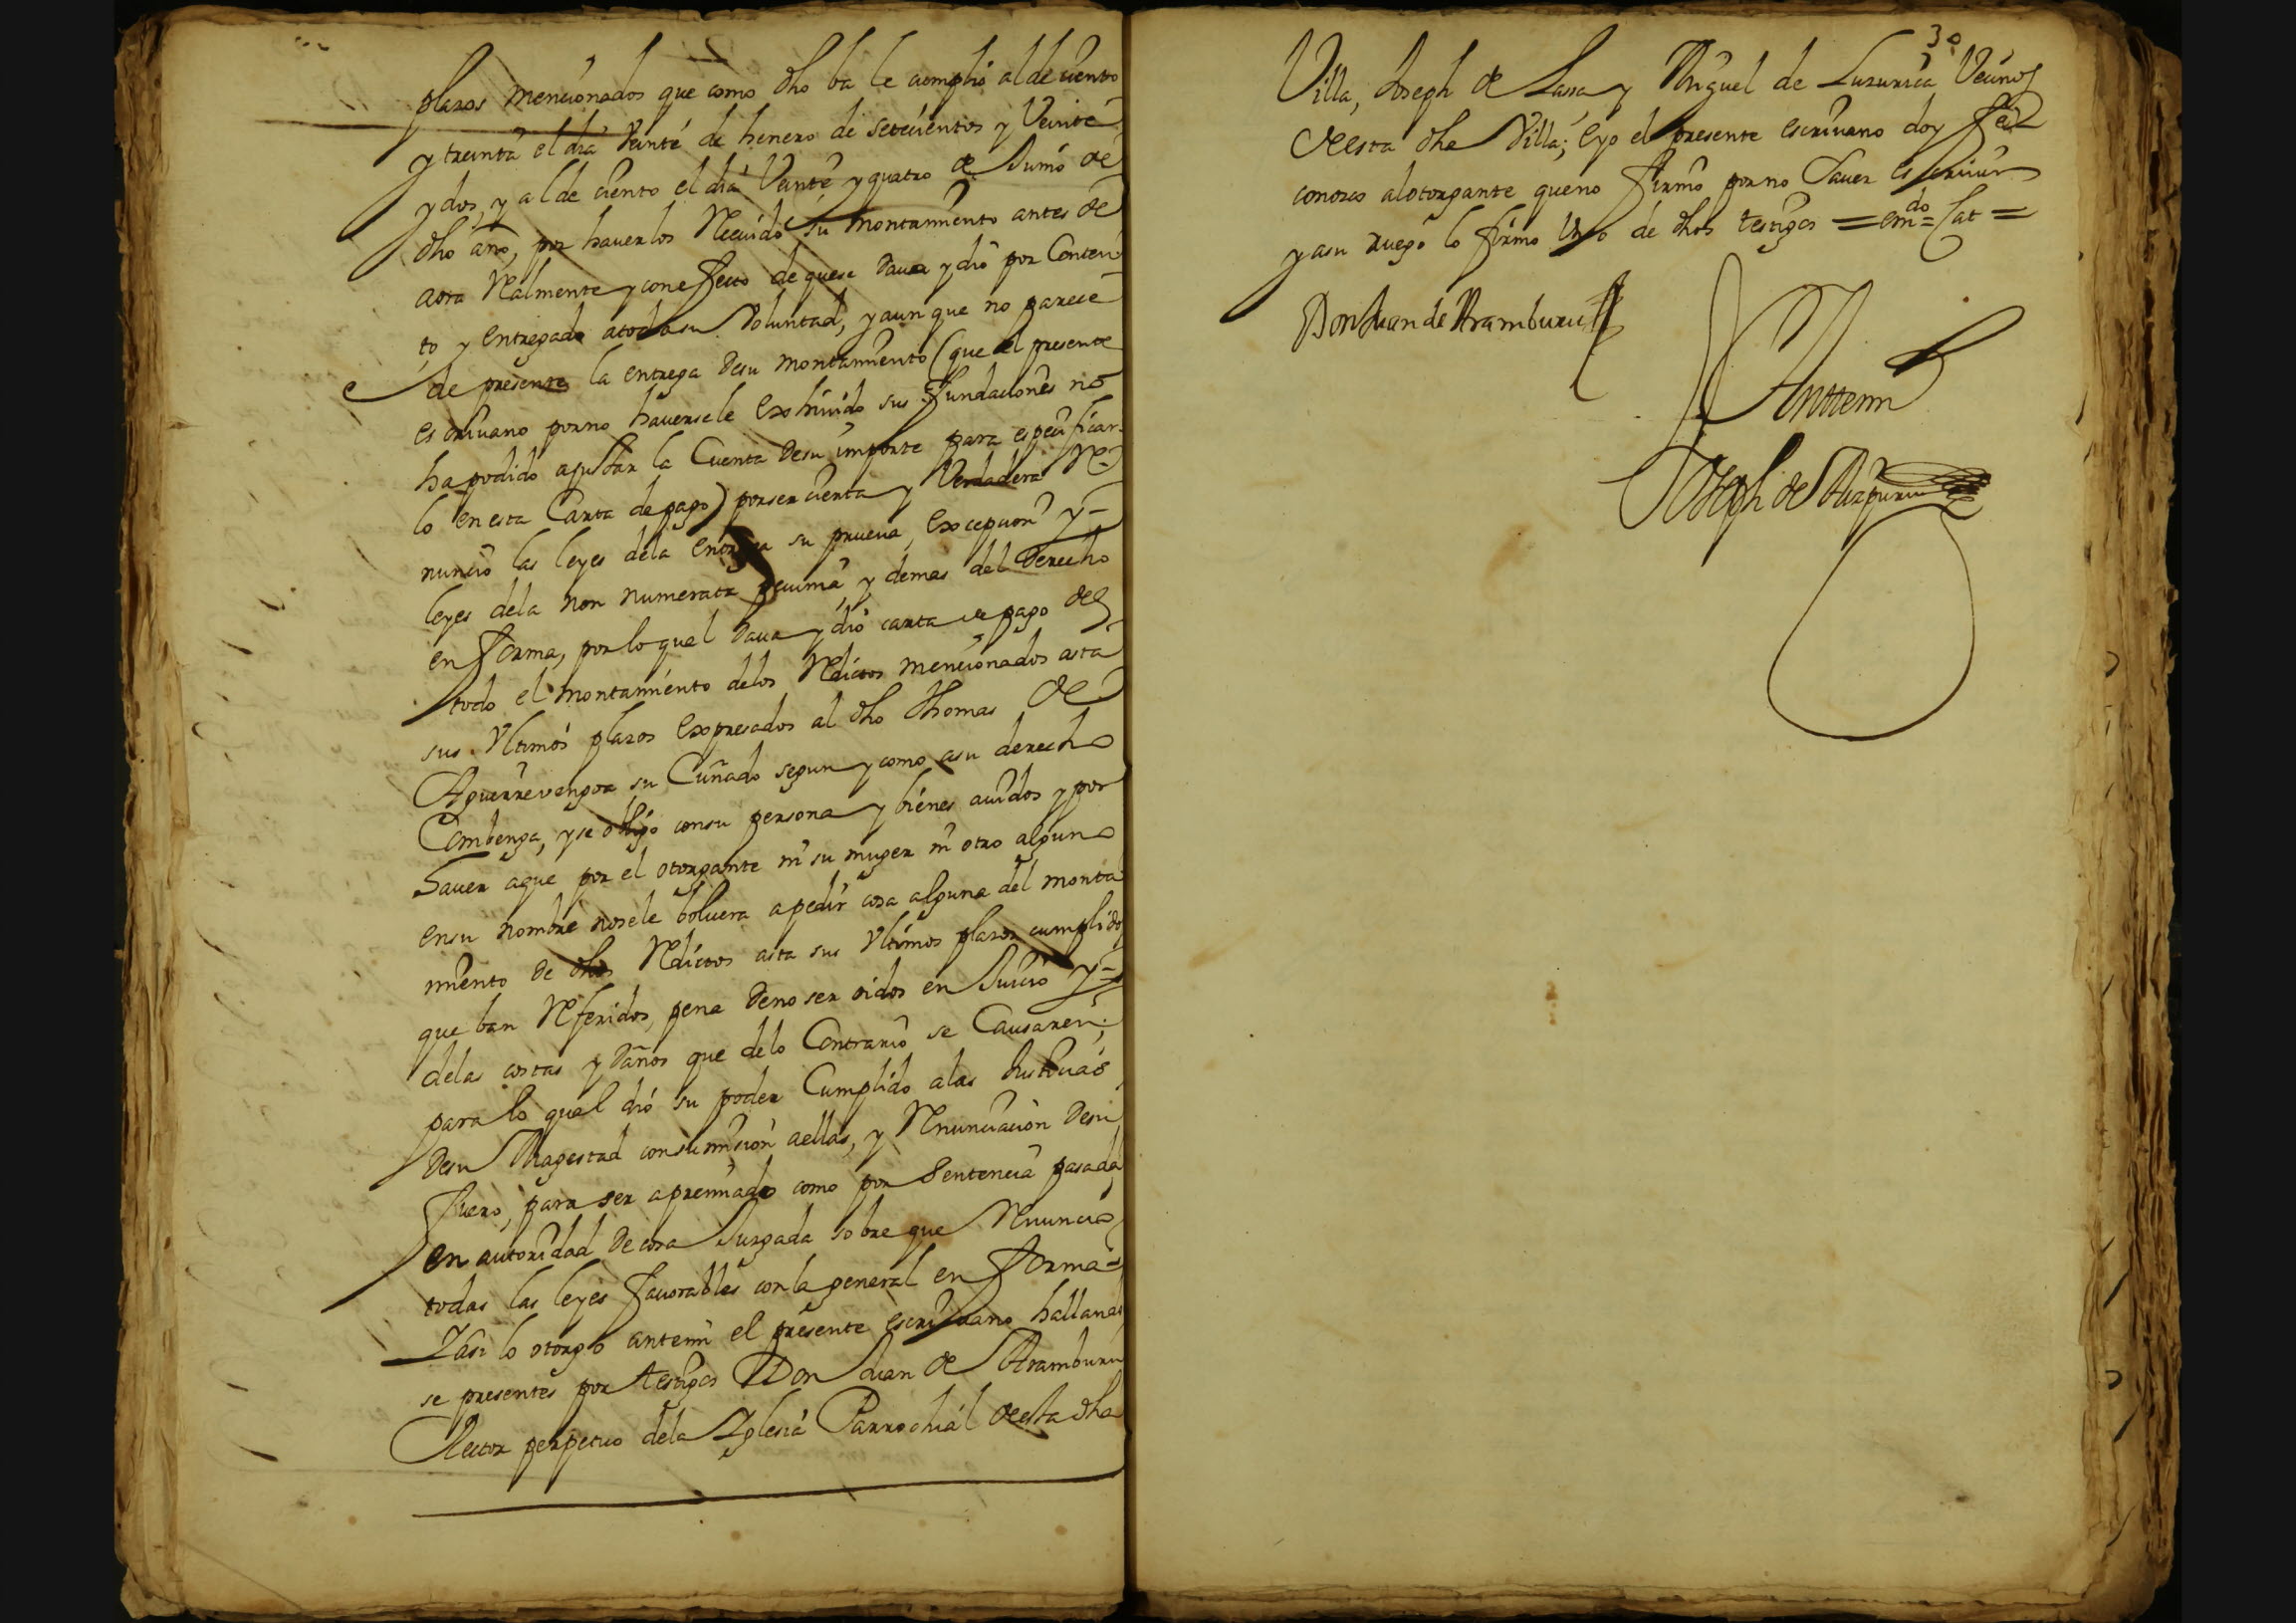 plazos mencionados que como dho ba se cumplio al de ciento
y treinta el dia veinte de henero de setecientos y Veinte
y dos, y al de ciento el dia Veinte y quatro de Junio de
dho año, por hauerlos Recuido su montamiento antes de
aora Realmente y con efecto de que se daua y dio por Conten
to y entregado a toda su Voluntad, y aunque no parece
de presente la entrega de su montamiento (que el presente
escriuano por no hauersele exhiuido sus fundaciones no
ha podido ajustar la Cuenta de su importe para espeçificar
lo en esta Carta de pago) por ser cierta y Verdadera Re
nunció las leyes de la entrega su prueua, excepcion y
leyes de la non numerata pecunia, y demas del derecho
en forma, por lo qual daua y dio carta de pago de
todo el montamiento de los Reditos mencionados asta
sus Vltimos plazos expresados al dho Thomas de
Aguerrevengoa su Cuñado segun y como a su derecho
Combenga, y se obligo con su persona y bienes auidos y por
hauer a que por el otorgante ni su muger ni otro alguno
en su nombre no se le boluera a pedir cosa alguna del monta
miento de dhos Reditos asta sus Vltimos plazos cumplidos
que ban Referidos, pena de no ser oidos en Juicio y
de las costas y daños que de lo Contrario se Causaren;
para lo qual dió su poder Cumplido a las Justicias
de su Magestad con sumision a ellas, y Renunciacion de su
fuero, para ser apremiado como por Sentencia pasada
en autoridad de cosa Juzgada sobre que Renunció
todas las leyes fauorables con la general en forma
Y asi lo otorgó ante mi el presente escriuano hallando
se presentes por testigos Don Juan de Aramburu
Rector perpetuo de la Yglesia Parrochial de esta dha
30
Villa, Joseph de Lassa y Miguel de Luzuriaga Vecinos
de esta dha Villa; e yo el presente escriuano doy fee
conozco al otorgante que no firmó por no sauer escriuir
y a su ruego lo firmo Uno de dhos testigos = emdo = Cat =
Don Juan de Aramburu
Ante mi
Joseph de Aizpuru